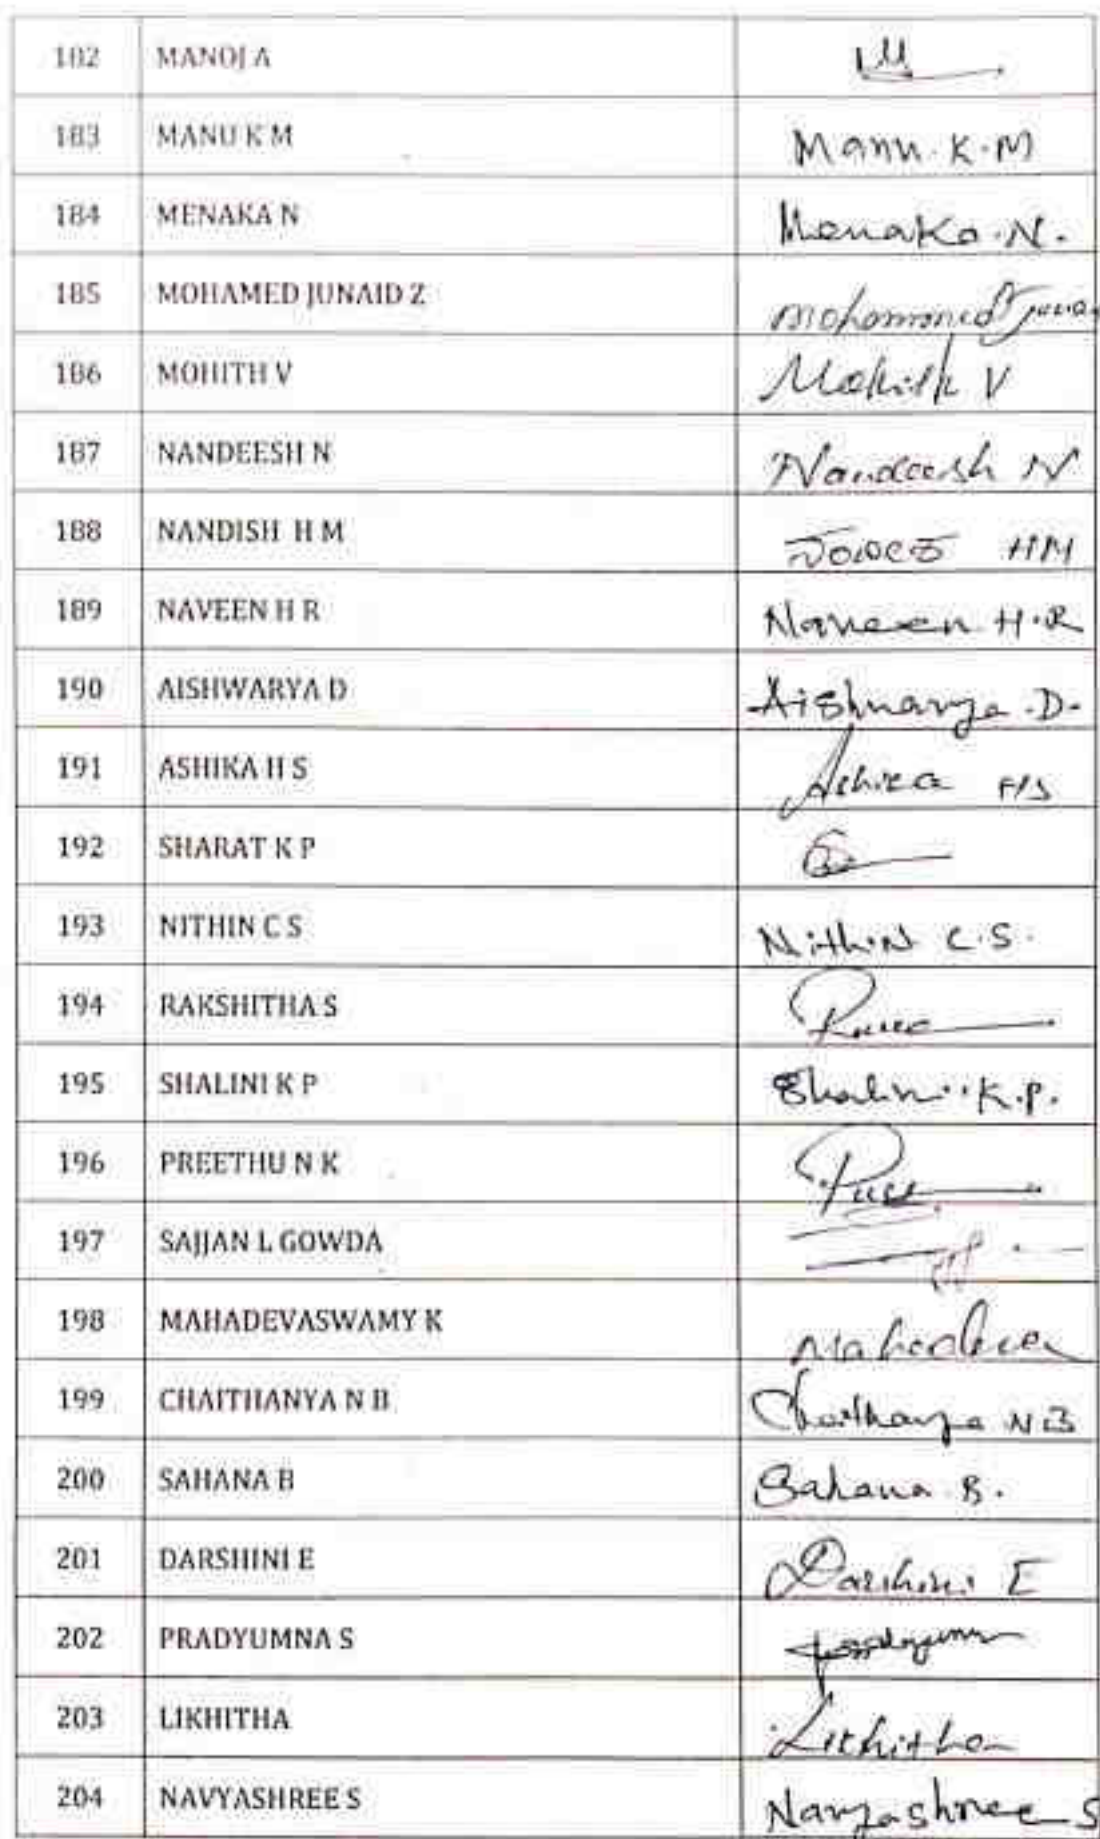 182 MANOJ A M
183 MANU K M Manu.K.M
184 MENAKA N Menaka.N.
185 MOHAMED JUNAID Z Mohammed
186 MOHITH V Mohith V
187 NANDEESH N Nandeesh N
188 NANDISH H M HM
189 NAVEEN H R Naveen H.R
190 AISHWARYA D Aishwarya.D.
191 ASHIKA H S Ashika HS
192 SHARAT K P
193 NITHIN C S NithiN C.S.
194 RAKSHITHA S
195 SHALINI K P Shalini.K.P.
196 PREETHU N K
197 SAJJAN L GOWDA
198 MAHADEVASWAMY K Mahadeva
199 CHAITHANYA N B Chaithanya NB
200 SAHANA B Sahana B.
201 DARSHINI E Darshini E
202 PRADYUMNA S
203 LIKHITHA Likhitha
204 NAVYASHREE S Navyashree S